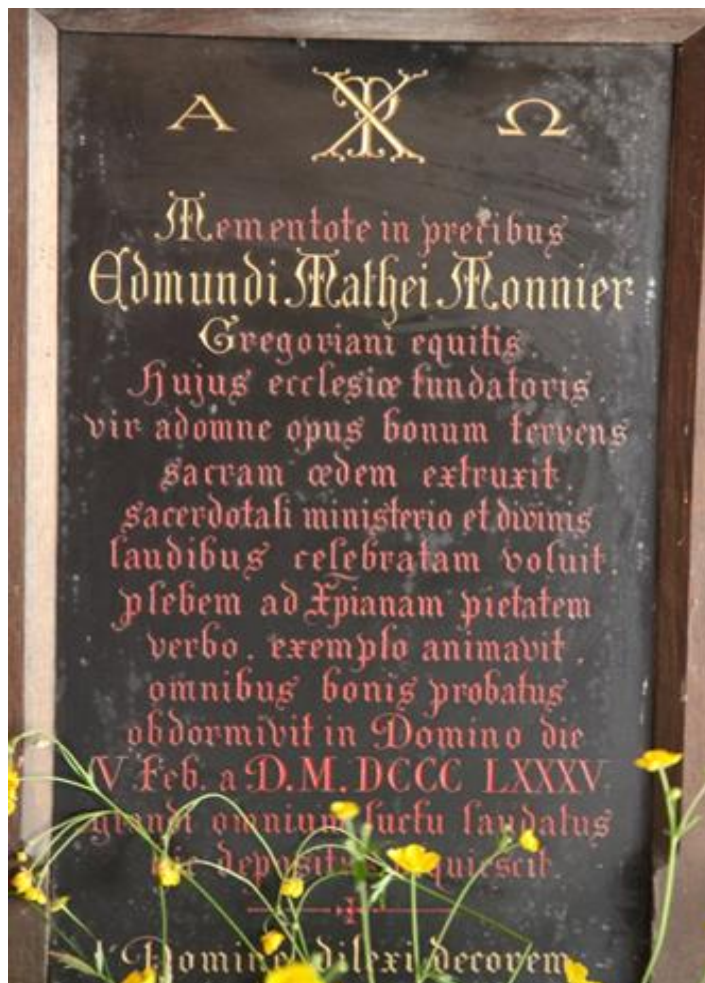 Α ☧ Ω
Mementote in precibus
Edmundi Mathei Monnier
Gregoriani equitis.
Hujus ecclesiæ fundatoris.
vir adomne opus bonum fervens
sacram ædem extruxit.
sacerdotali ministerio et divinis
laudibus celebratam voluit.
plebem ad Xpianam pietatem
verbo. exemplo animavit.
omnibus bonis probatus
obdormivit in Domino die
IV. Feb. a D.M.DCCC LXXXV.
grandi omnium luctu laudatus
hic depositus requiescit.
Domine dilexi decorem